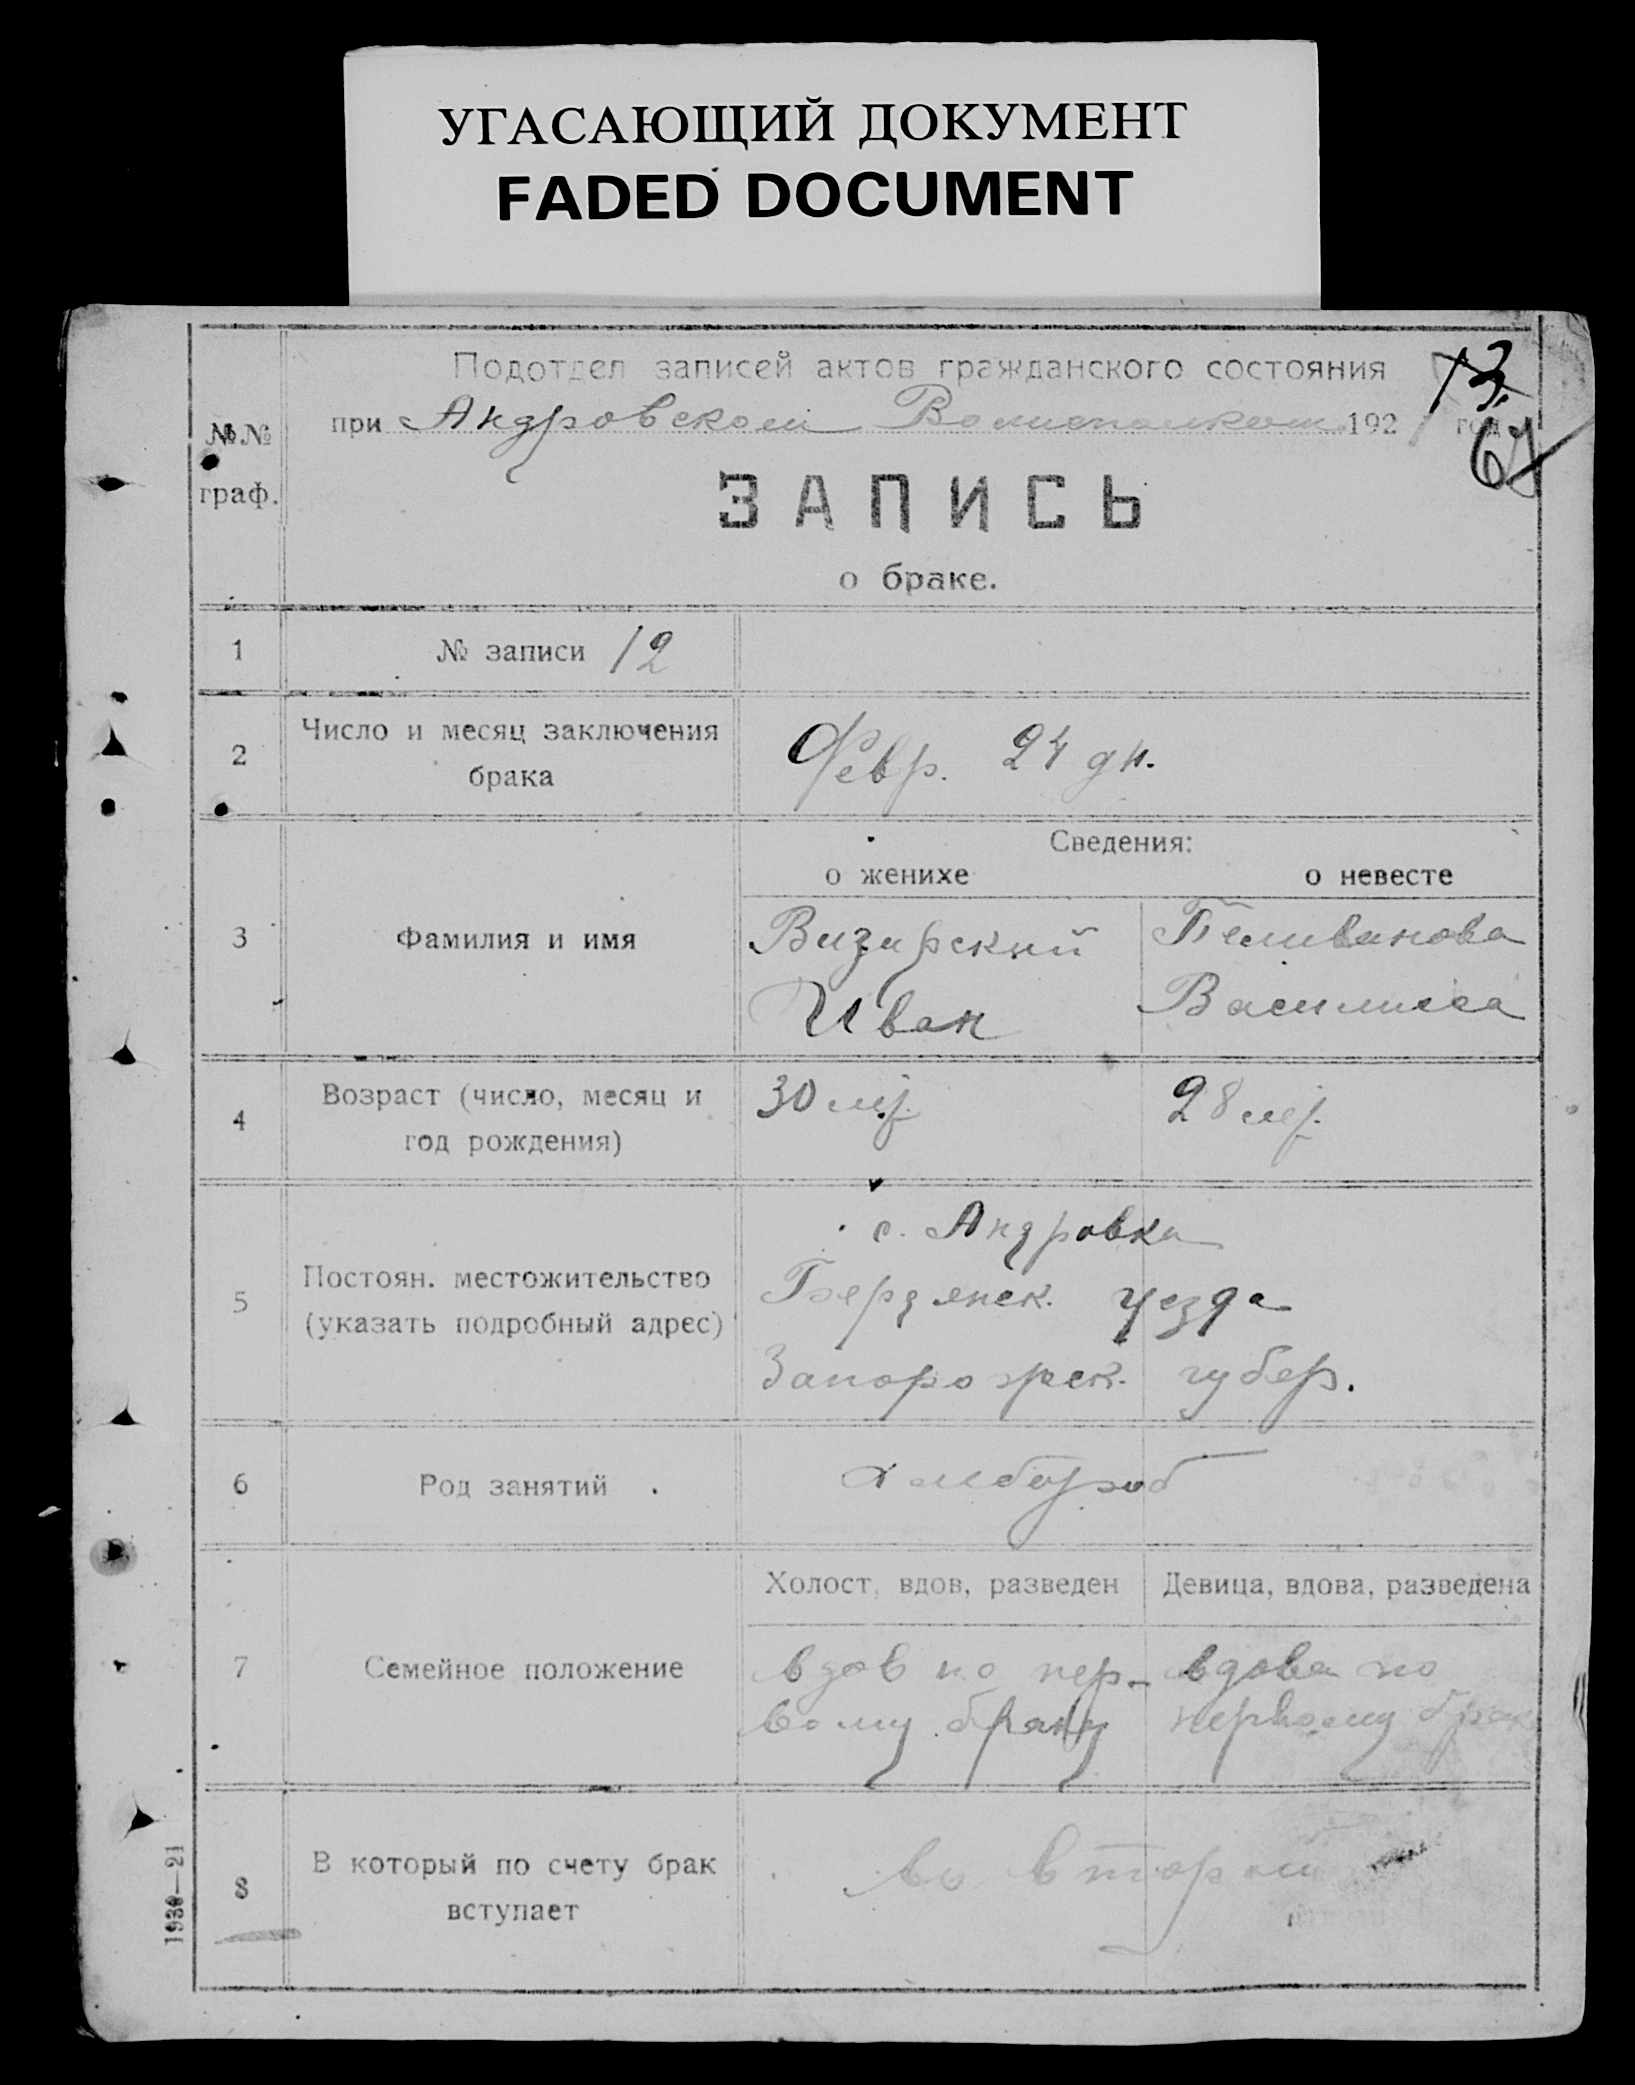 УГАСАЮЩИЙ ДОКУМЕНТ
FADED DOCUMENT
Подотдел записей актов гражданского состояния
13
№№
при Андровском 192 год
67
граф.
ЗАПИСЬ
о браке.
1
№ записи 12
2
Число и месяц заключения
брака
Февр. 24 дн.
Сведения:
о женихе
о невесте
3
Фамилия и имя
Визирский
Иван
Пеливанова
Василиса
4
Возраст (число, месяц и
год рождения)
30 лет
28 лет
5
Постоян. местожительство
(указать подробный адрес)
с. Андровка
Бердянск. уезда
Запорожск. губер.
6
Род занятий
хлебороб
7
Семейное положение
Холост, вдов, разведен
Девица, вдова, разведена
вдов по пер-
вому браку
вдова по
первому брак
8
В который по счету брак
вступает
во второй
1930—21